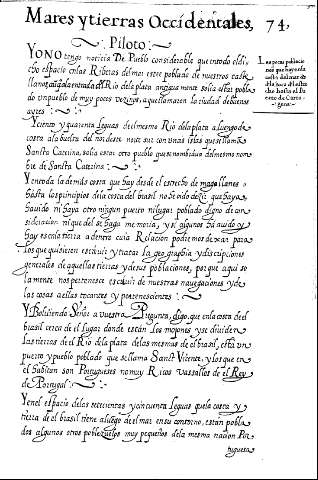 Mares y tierras Occidentales, 74.
Piloto:
YO NO tengo noticia De Pueblo considerable que en todo el di-
cho espacio en las Riberas del mar este poblado de nuestros caste
llanos, a la entrada del Rio dela plata antigua mente solia estar pobla
do un pueblo de muy pocos vezinos, a que llamaren la ciudad de buenos
ayres
Y ciento y quarenta leguas de el mesmo Rio dela plata a luengo de
costa a la buelta del nordeste norte sur con unas islas que se llaman
Sancta Caterina, solia estar otro pueblo que se nombraua del mesmo nom
bre de Sancta Caterina
Y en toda la demas costa que hay desde el estrecho de magallanes
hasta los principios dela costa del brasil no se yo dezir que haya
hauido ni haya otro ningun puerto ni lugar poblado digno de con
sideracion ni que del se haga memoria, y si algunos ha auido o
hay en la tierra a dentro cuia Relacion podremos dexar para
los que quisieren escriuir y tratar la geographia y discripciones
generales de aquellas tierras y de sus poblaciones, porque aqui so
la mente nos pertenesce escriuir de nuestras nauegaciones y de
las cosas a ellas tocantes y pertenescientes
Y Boluiendo Señor a vuestra Pregunta, digo, que en la costa de el
brasil cerca de el lugar donde estan los mojones y se diuiden
las tierras de el Rio dela plata de las mesmas de el brasil, està un
puerto y pueblo poblado que se llama Sanct Vicente, y los que en
el habitan son Portugueses no muy Ricos vassallos de el Rey
de Portugal
Y en el espacio de las setecientas y cincuenta leguas que la costa y
tierra de el brasil tiene a luego de el mar en su contorno, estan pobla
dos algunos otros pueblezuelos muy pequeños dela mesma nacion Por
tuguesa
La poca pobla
cion que hay en la
costa del mar de